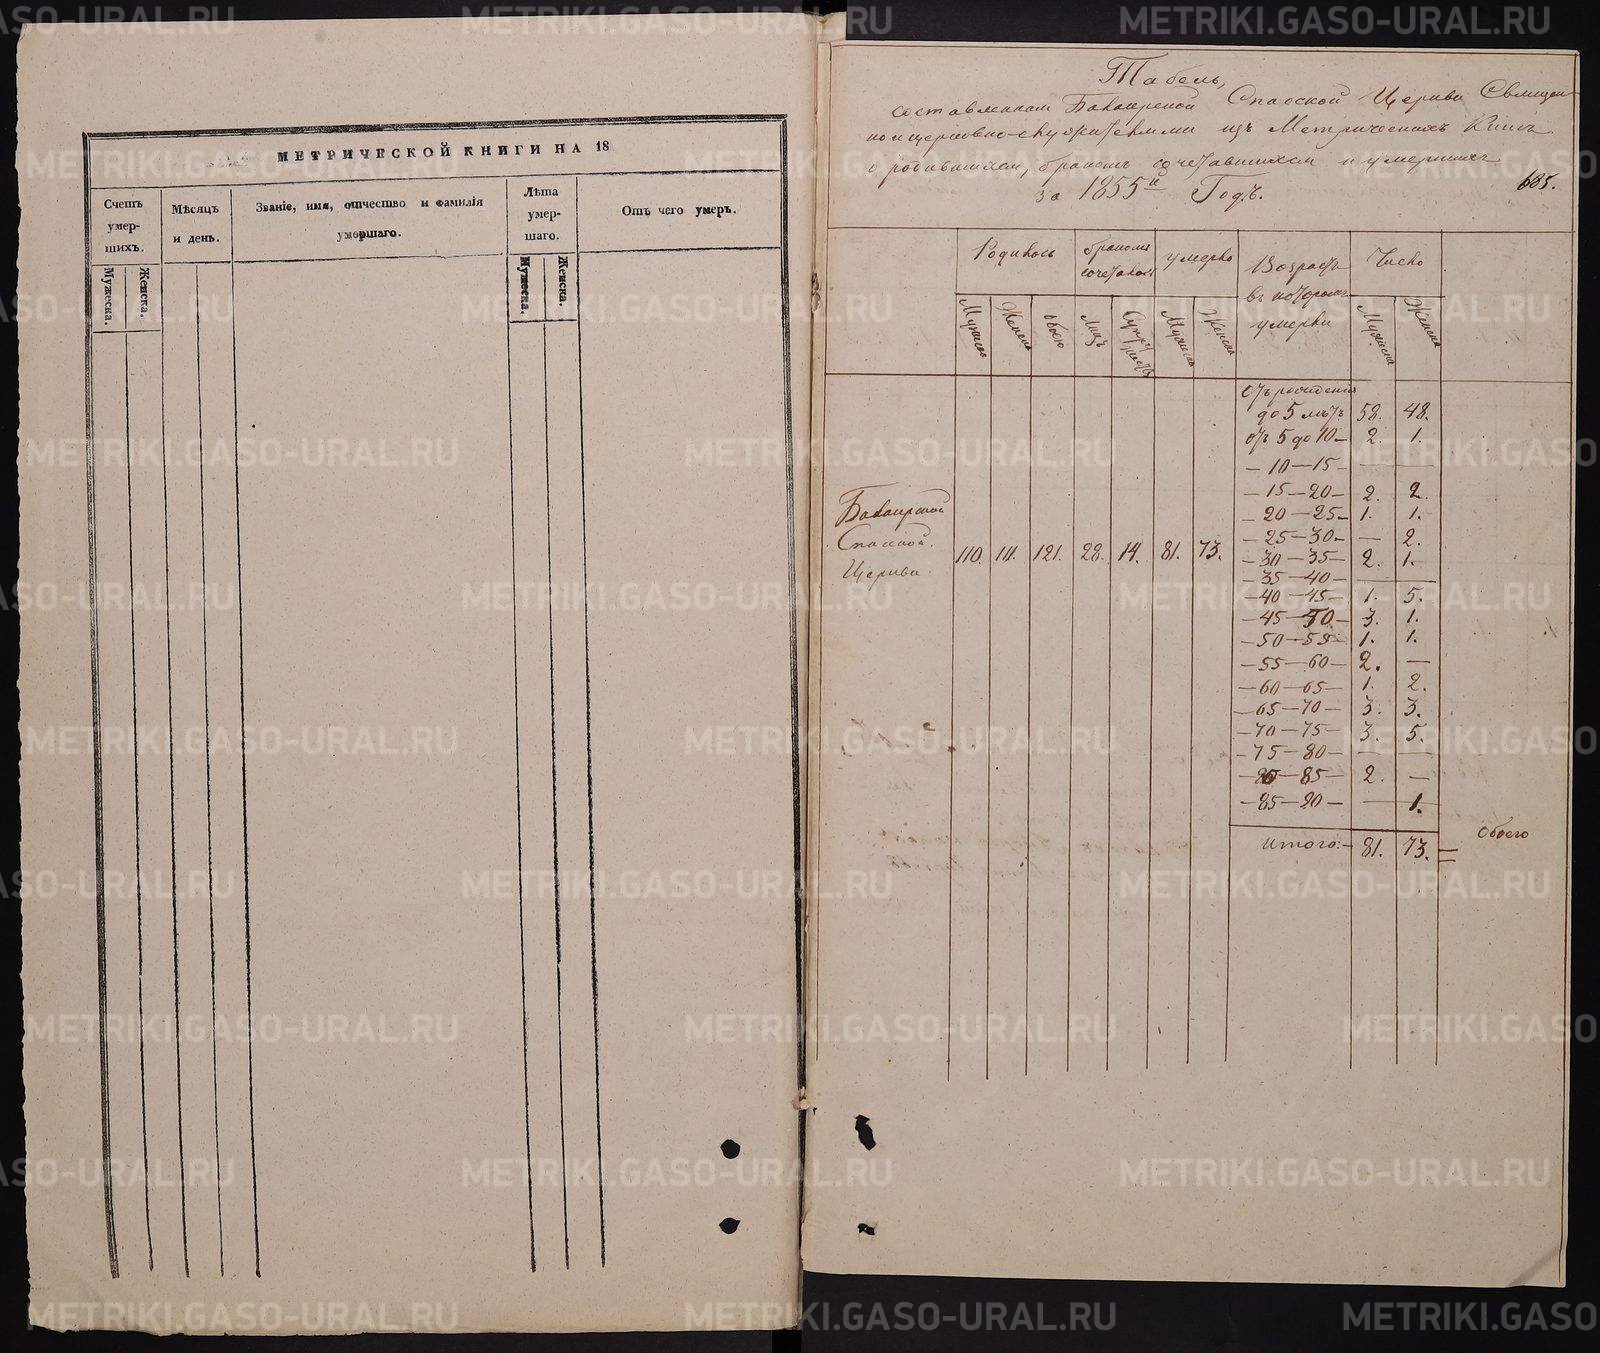 МЕТРИЧЕСКОЙ КНИГИ НА 18
Счетъ умер- шихъ.
Мѣсяцъ и день.
Званіе, имя, отчество и фамилія умершаго.
Лѣта умер- шаго.
Отъ чего умеръ.
Мужеска. Женска.
Мужеска. Женска.
Табель,
составленная Спасской Церкви Священ-
но и церковно-служителями изъ Метрическихъ Книгъ
о родившихся, бракомъ сочетавшихся и умершихъ
за 1855й Годъ.
685.
Родилось
бракомъ сочеталось
умерло
Возрастъ въ которомъ умерли
Число
Мужеска Женска обоего Лицъ Мужеска Женска Мужеска Женска
отъ рожденія
до 5 лѣтъ 58. 48.
отъ 5 до 10 – 2. 1.
– 10 – 15 – — —
– 15 – 20 – 2. 2.
– 20 – 25 – 1. 1.
– 25 – 30 – — 2.
– 30 – 35 – 2. 1.
– 35 – 40 – — —
– 40 – 45 – 1. 5.
– 45 – 50 – 3. 1.
– 50 – 55 – 1. 1.
– 55 – 60 – 2. —
– 60 – 65 – 1. 2.
– 65 – 70 – 3. 3.
– 70 – 75 – 3. 5.
– 75 – 80 – — —
– 80 – 85 – 2. —
– 85 – 90 – — 1.
Спасской
Церкви
110. 111. 121. 28. 14. 81. 73.
Итого:– 81. 73. =
Обоего
METRIKI.GASO-URAL.RU